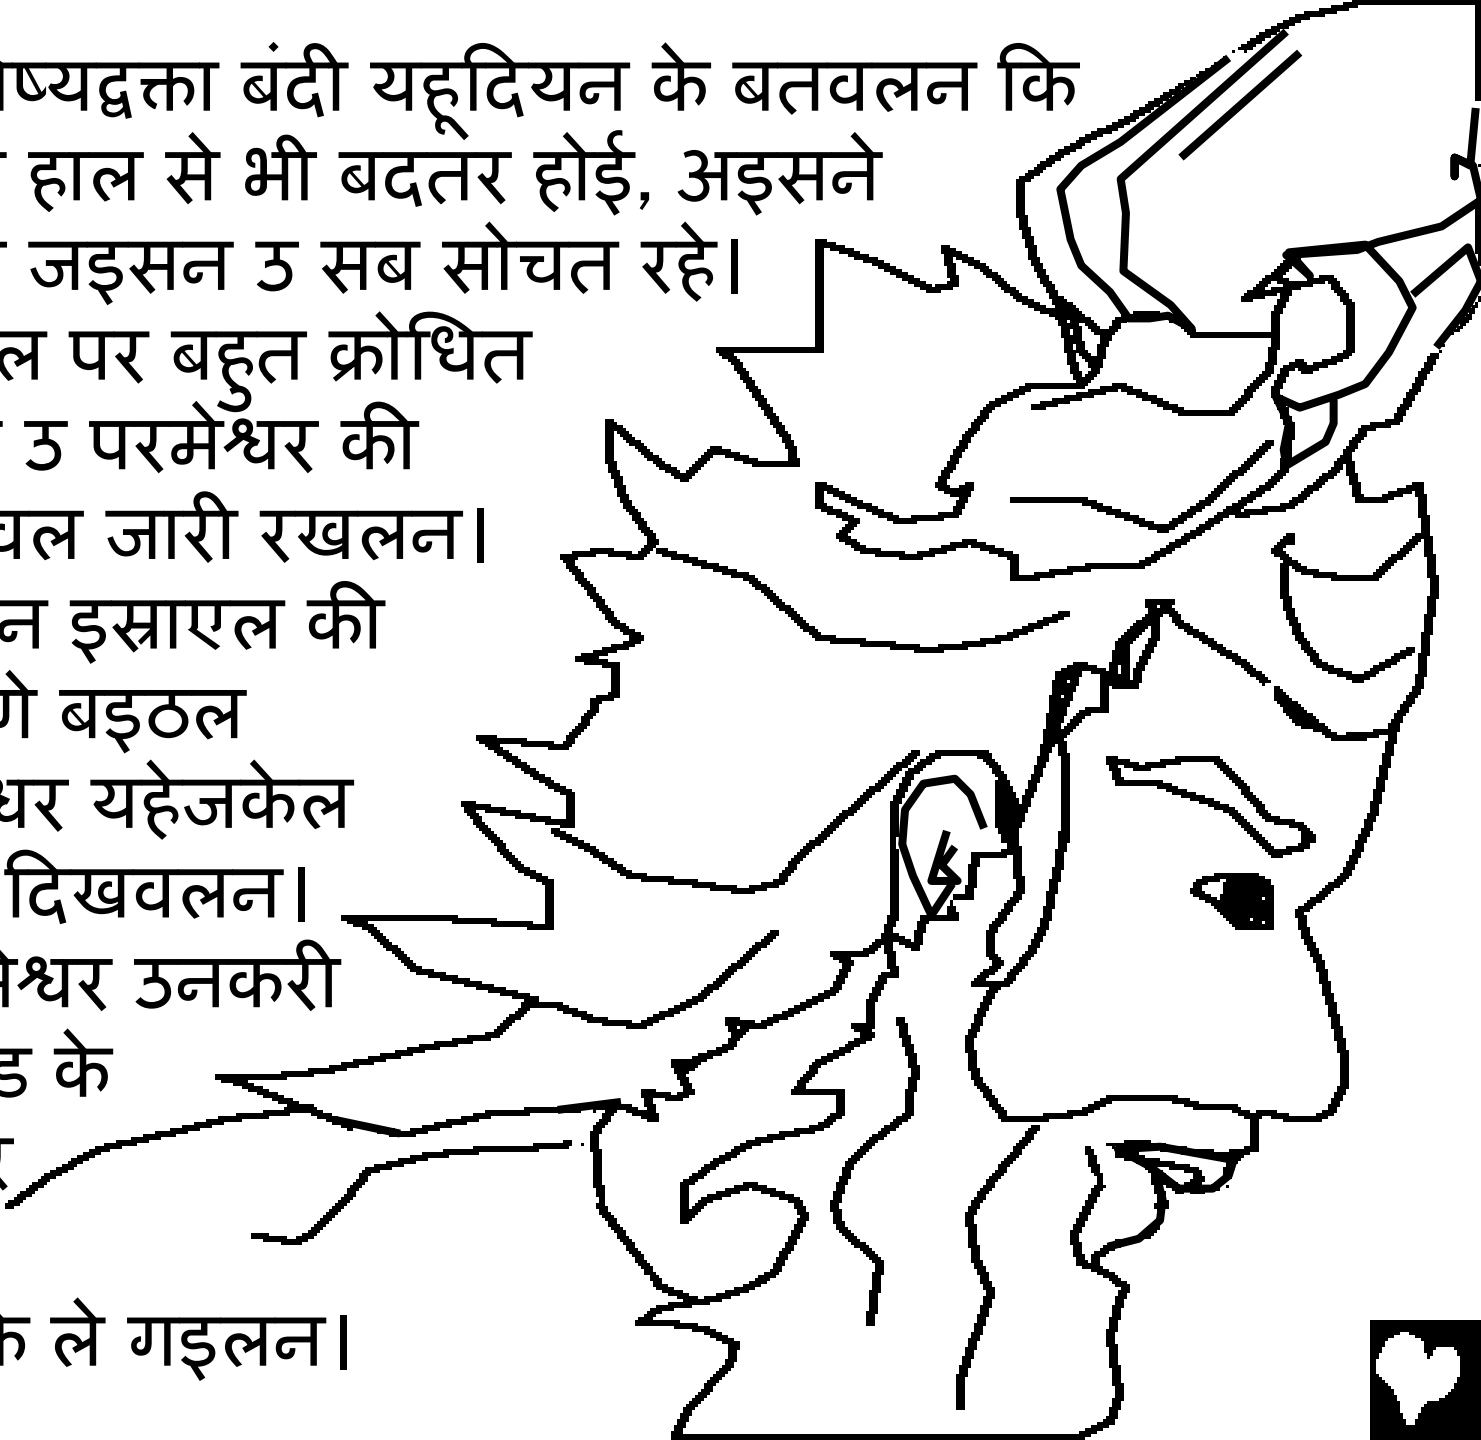 बंदी यहूदियन के बतवलन कि
हाल से भी बदतर होई, अइसने
जइसन उ सब सोचत रहे।
पर बहुत क्रोधित
उ परमेश्वर की
जारी रखलन।
इस्राएल की
बइठल
यहेजकेल
दिखवलन।
उनकरी
के
ले गइलन।